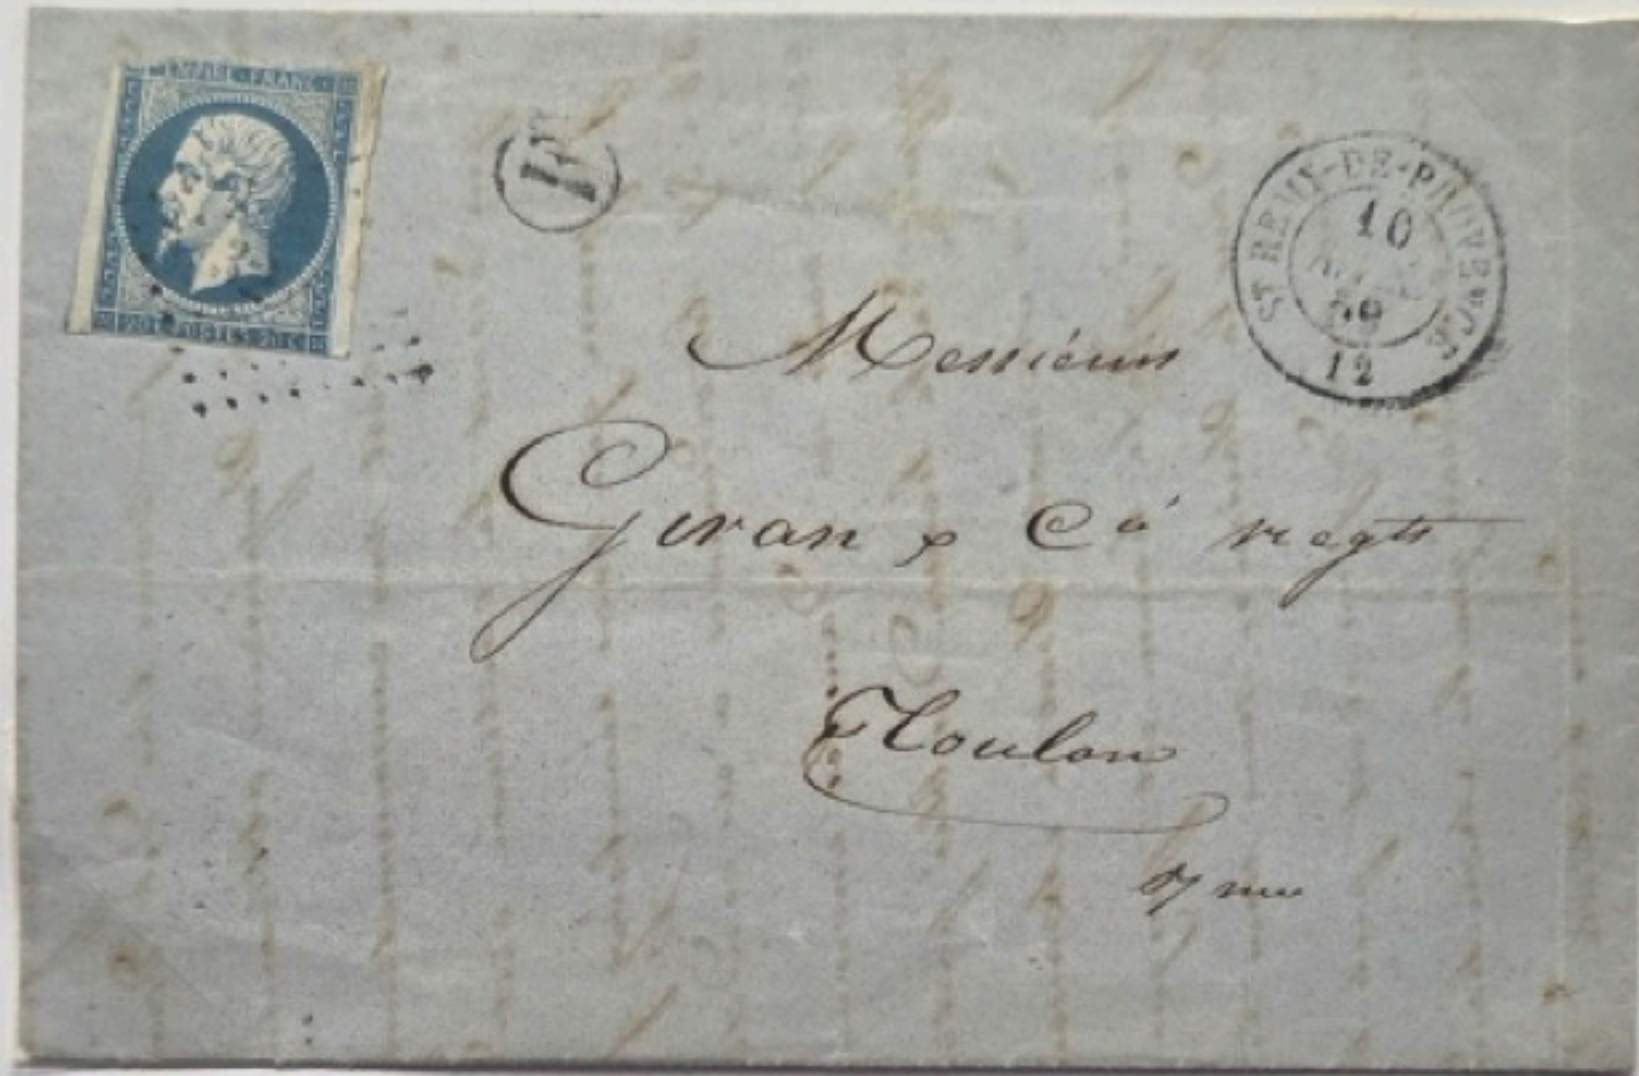 EMPIRE FRANC
20 C POSTES 20 C
ST REMY-DE-PROVENCE
10
12
Messieurs
Giran & Cie negts
Toulon